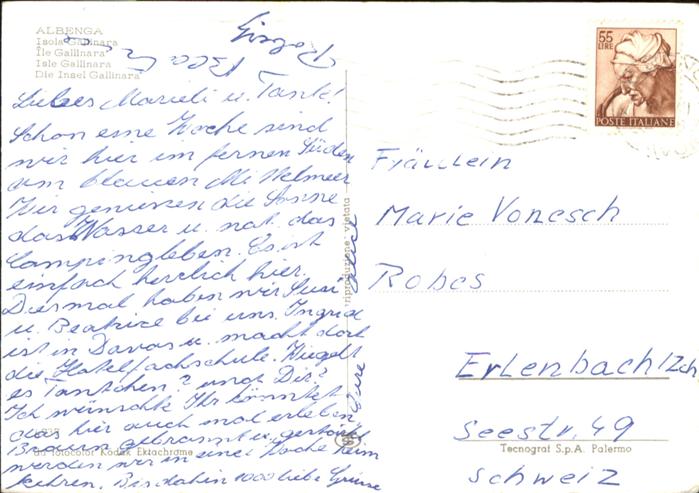 ALBENGA
Isola Gallinara
Île Gallinara
Isle Gallinara
Die Insel Gallinara
Liebes Marieli u. Tanti!
Schon eine Woche sind
wir hier im fernen Süden
am blauen Mittelmeer
Wir geniessen die Sonne
das Wasser u. nat. das
Campingleben. Es ist
einfach herrlich hier.
Diesmal haben wir Susi
u. Beatrice bei uns. Ingrid
ist in Davos u. macht dort
die Hotelfachschule. Wie geht
es Tantchen? und Dir?
Ich wünschte Ihr könntet
das hier auch mal erleben
Braun gebrannt u. gestärkt
werden wir in einer Woche heim
kehren. Bis dahin 1000 liebe Grüsse
Eure
55
LIRE
POSTE ITALIANE
Fräulein
Marie Vonesch
Robes
Erlenbach/Zch
Seestr. 49
Schweiz
riproduzione vietata
Fotocolor Kodak Ektachrome
Tecnograf S.p.A. Palermo